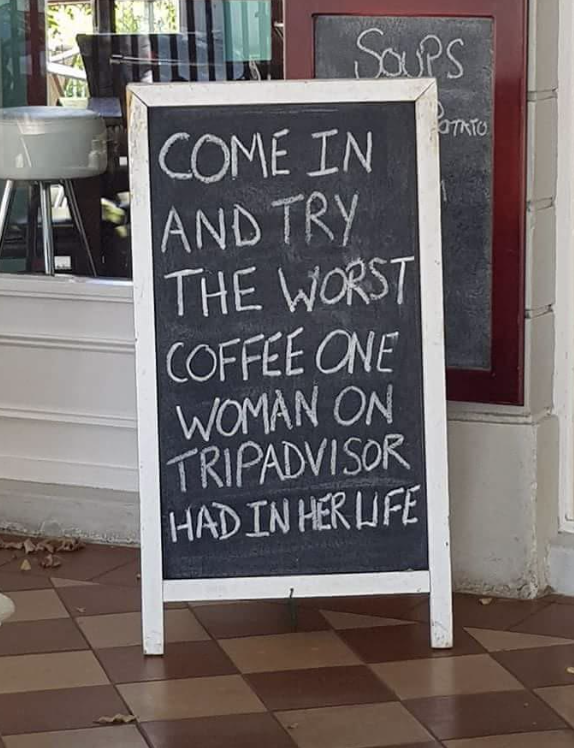 SOUPS
COME IN
AND TRY
THE WORST
COFFEE ONE
WOMAN ON
TRIPADVISOR
HAD IN HER LIFE